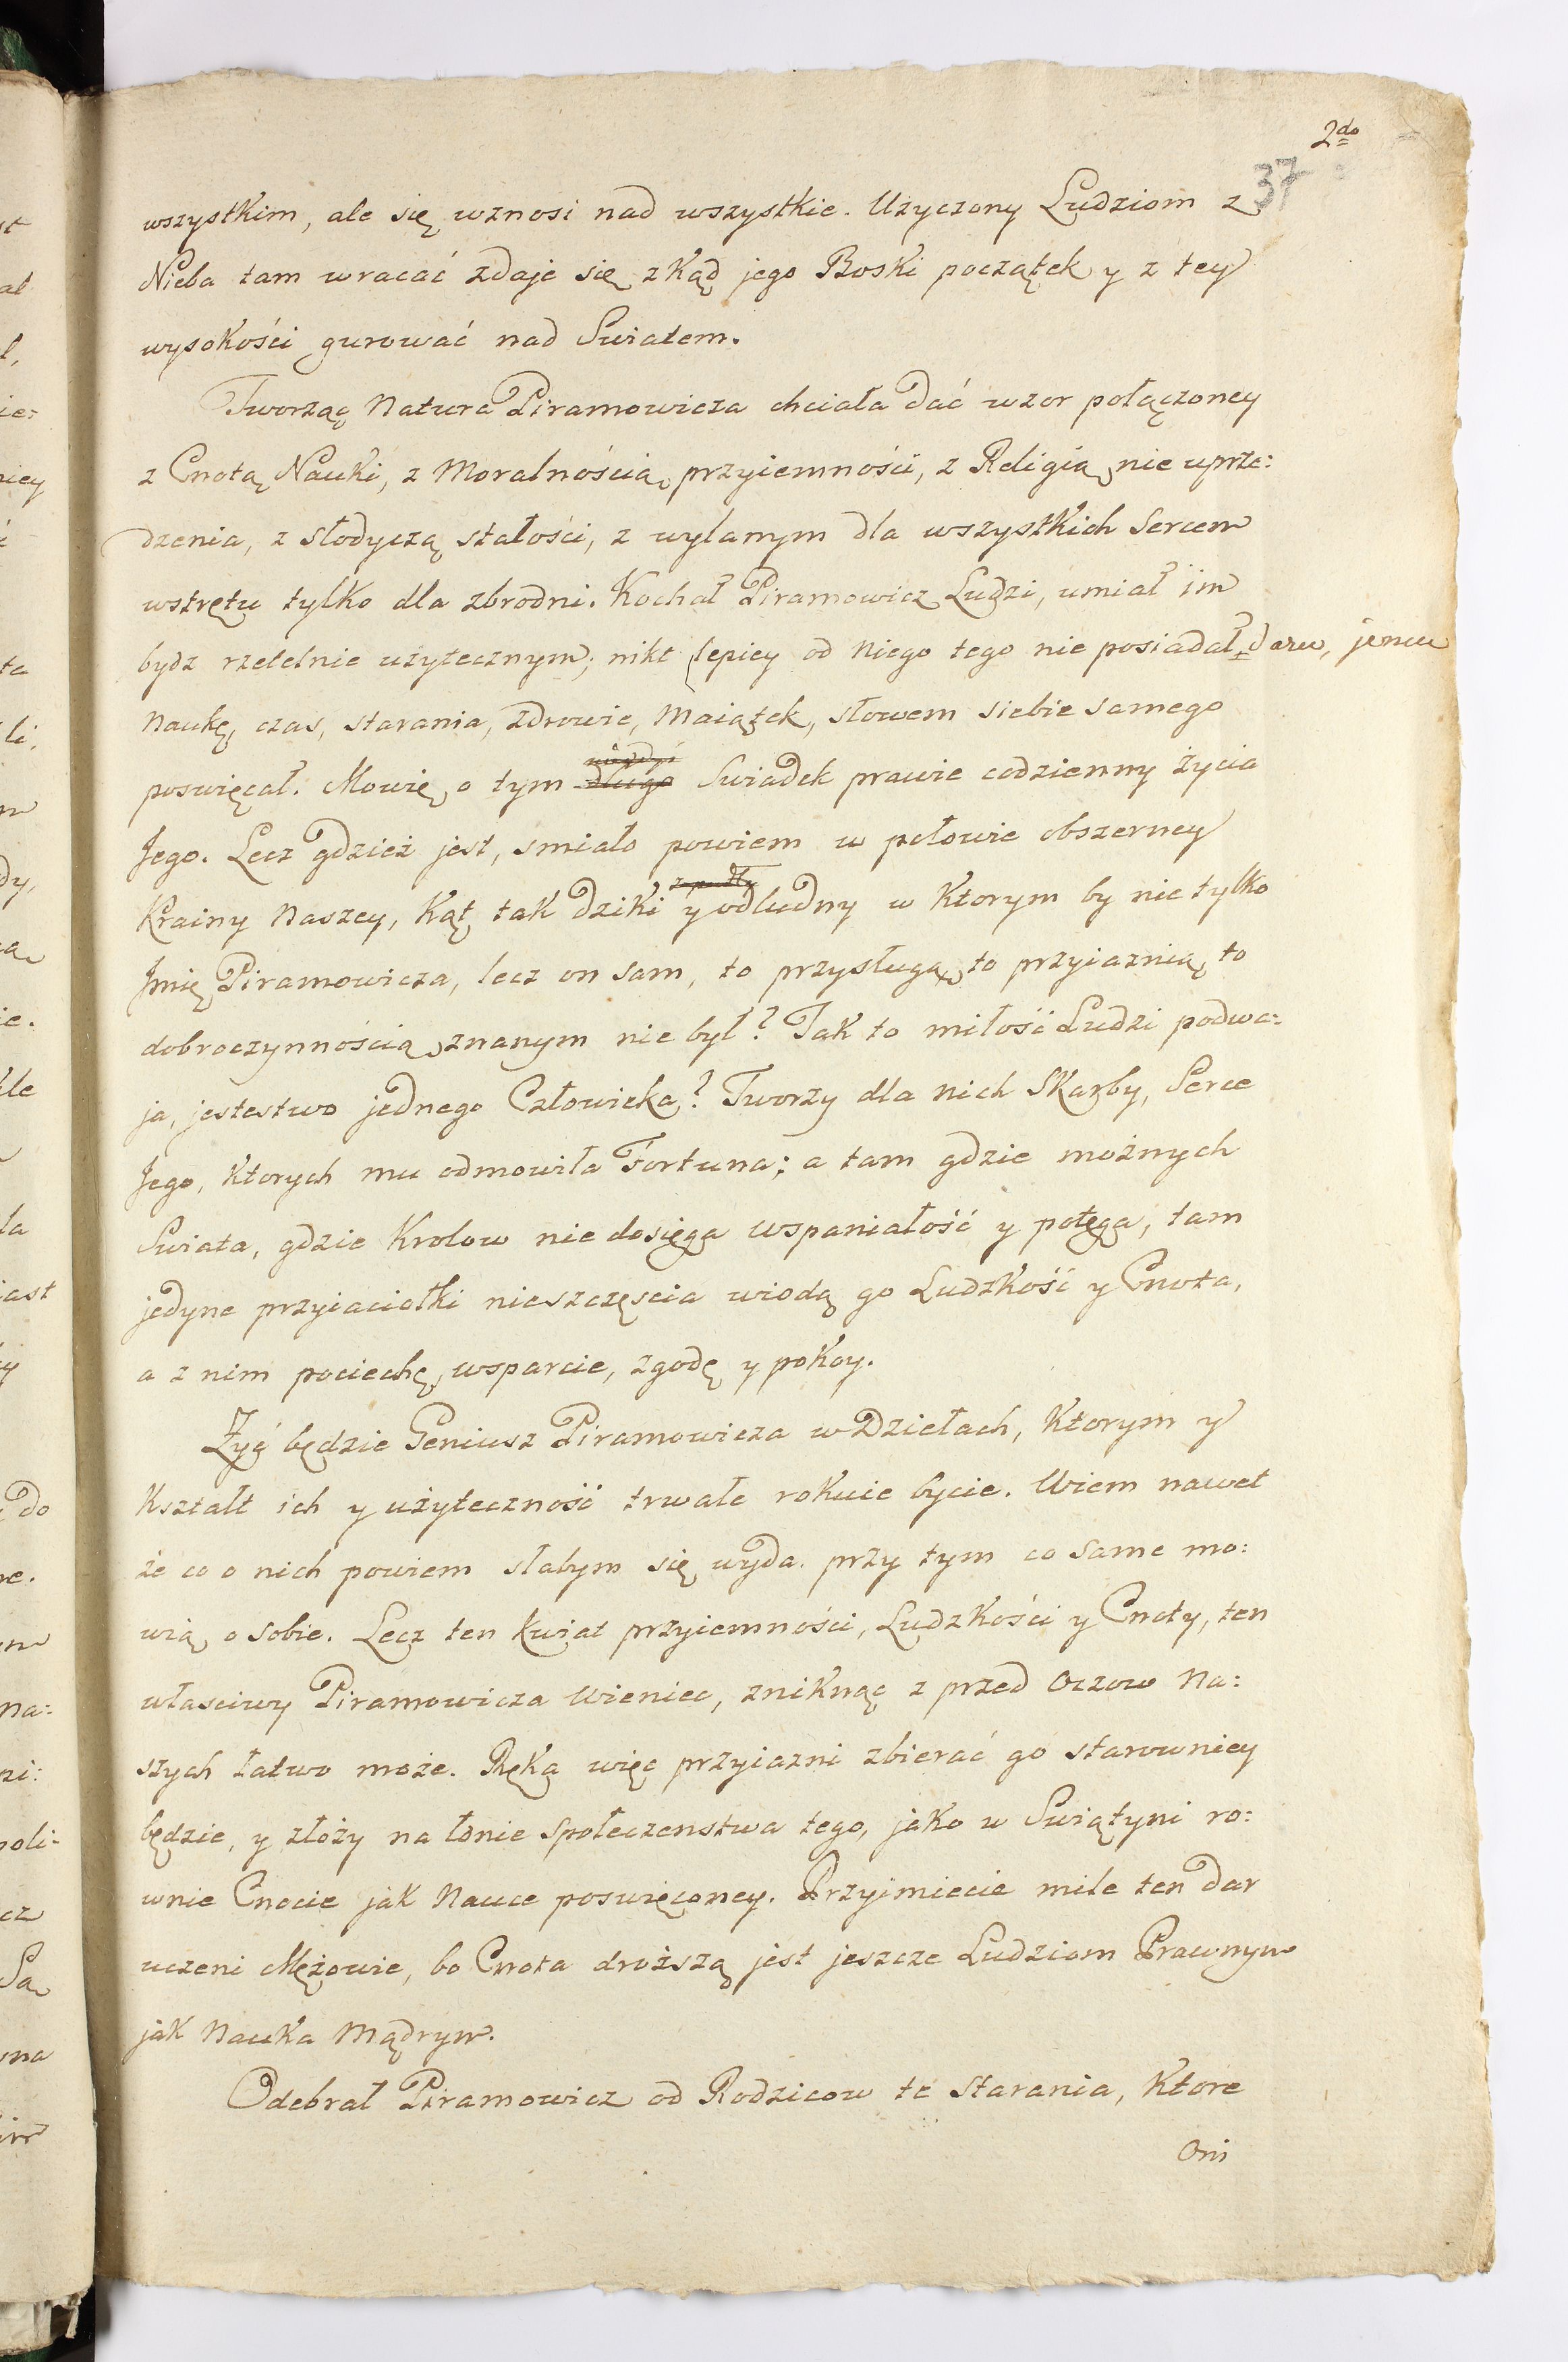 2do
37
wszystkim, ale się wznosi nad wszystkie. Użyczony Ludziom z
Nieba tam wracać zdaje się zkąd jego Boski początek y z tey
wysokości gurować nad Swiatem.
Tworząc Natura Piramowicza chciała dać wzor połączoney
z Cnotą Nauki, z Moralnością przyiemności, z Religią nie uprze:
dzenia, z słodyczą stałości, z wylanym dla wszystkich Sercem
wstrętu tylko dla zbrodni. Kochał Piramowicz Ludzi, umiał im
bydz rzetelnie użytecznym; nikt lepiey od Niego tego nie posiadał daru, jemu
Naukę, czas, starania, zdrowie, Maiątek, słowem siebie samego
poswięcał. Mowię o tym
niegdyś
długo Swiadek prawie codzienny życia
Jego. Lecz gdzież jest, smiało powiem w połowie obszerney
Krainy Naszey, Kąt tak dziki y odludny w Ktorym by nie tylko
Jmię Piramowicza, lecz on sam, to przysługą, to przyiaznią, to
dobroczynnością znanym nie był? Tak to miłość Ludzi podwa:
ja, jestestwo jednego Człowieka? Tworzy dla nich Skarby, Serce
Jego, Ktorych mu odmowiła Fortuna; a tam gdzie możnych
Swiata, gdzie Krolow nie dosięga wspaniałość y potęga, tam
jedyne przyiaciołki nieszczęscia wiodą go Ludzkość y Cnota,
a z nim pociechę, wsparcie, zgodę y pokoy.
Żyć będzie Geniusz Piramowicza w Dziełach, Ktorym y
Kształt ich y użyteczność trwałe rokuie bycie. Wiem nawet
że co o nich powiem słabym się wyda przy tym co same mo:
wią o sobie. Lecz ten kwiat przyiemności, Ludzkości y Cnoty, ten
własciwy Piramowicza Wieniec, zniknąć z przed Oczow Na:
szych łatwo może. Ręka więc przyiazni zbierać go starowniey
będzie, y złoży na łonie społeczenstwa tego, jako w Swiątyni ro:
wnie Cnocie jak Nauce poswięconey. Przyimiecie mile ten Dar
uczeni Mężowie, bo Cnota droższą jest jeszcze Ludziom Prawnym
jak Nauka Mądrym.
Odebrał Piramowicz od Rodzicow te Starania, Ktore
Oni